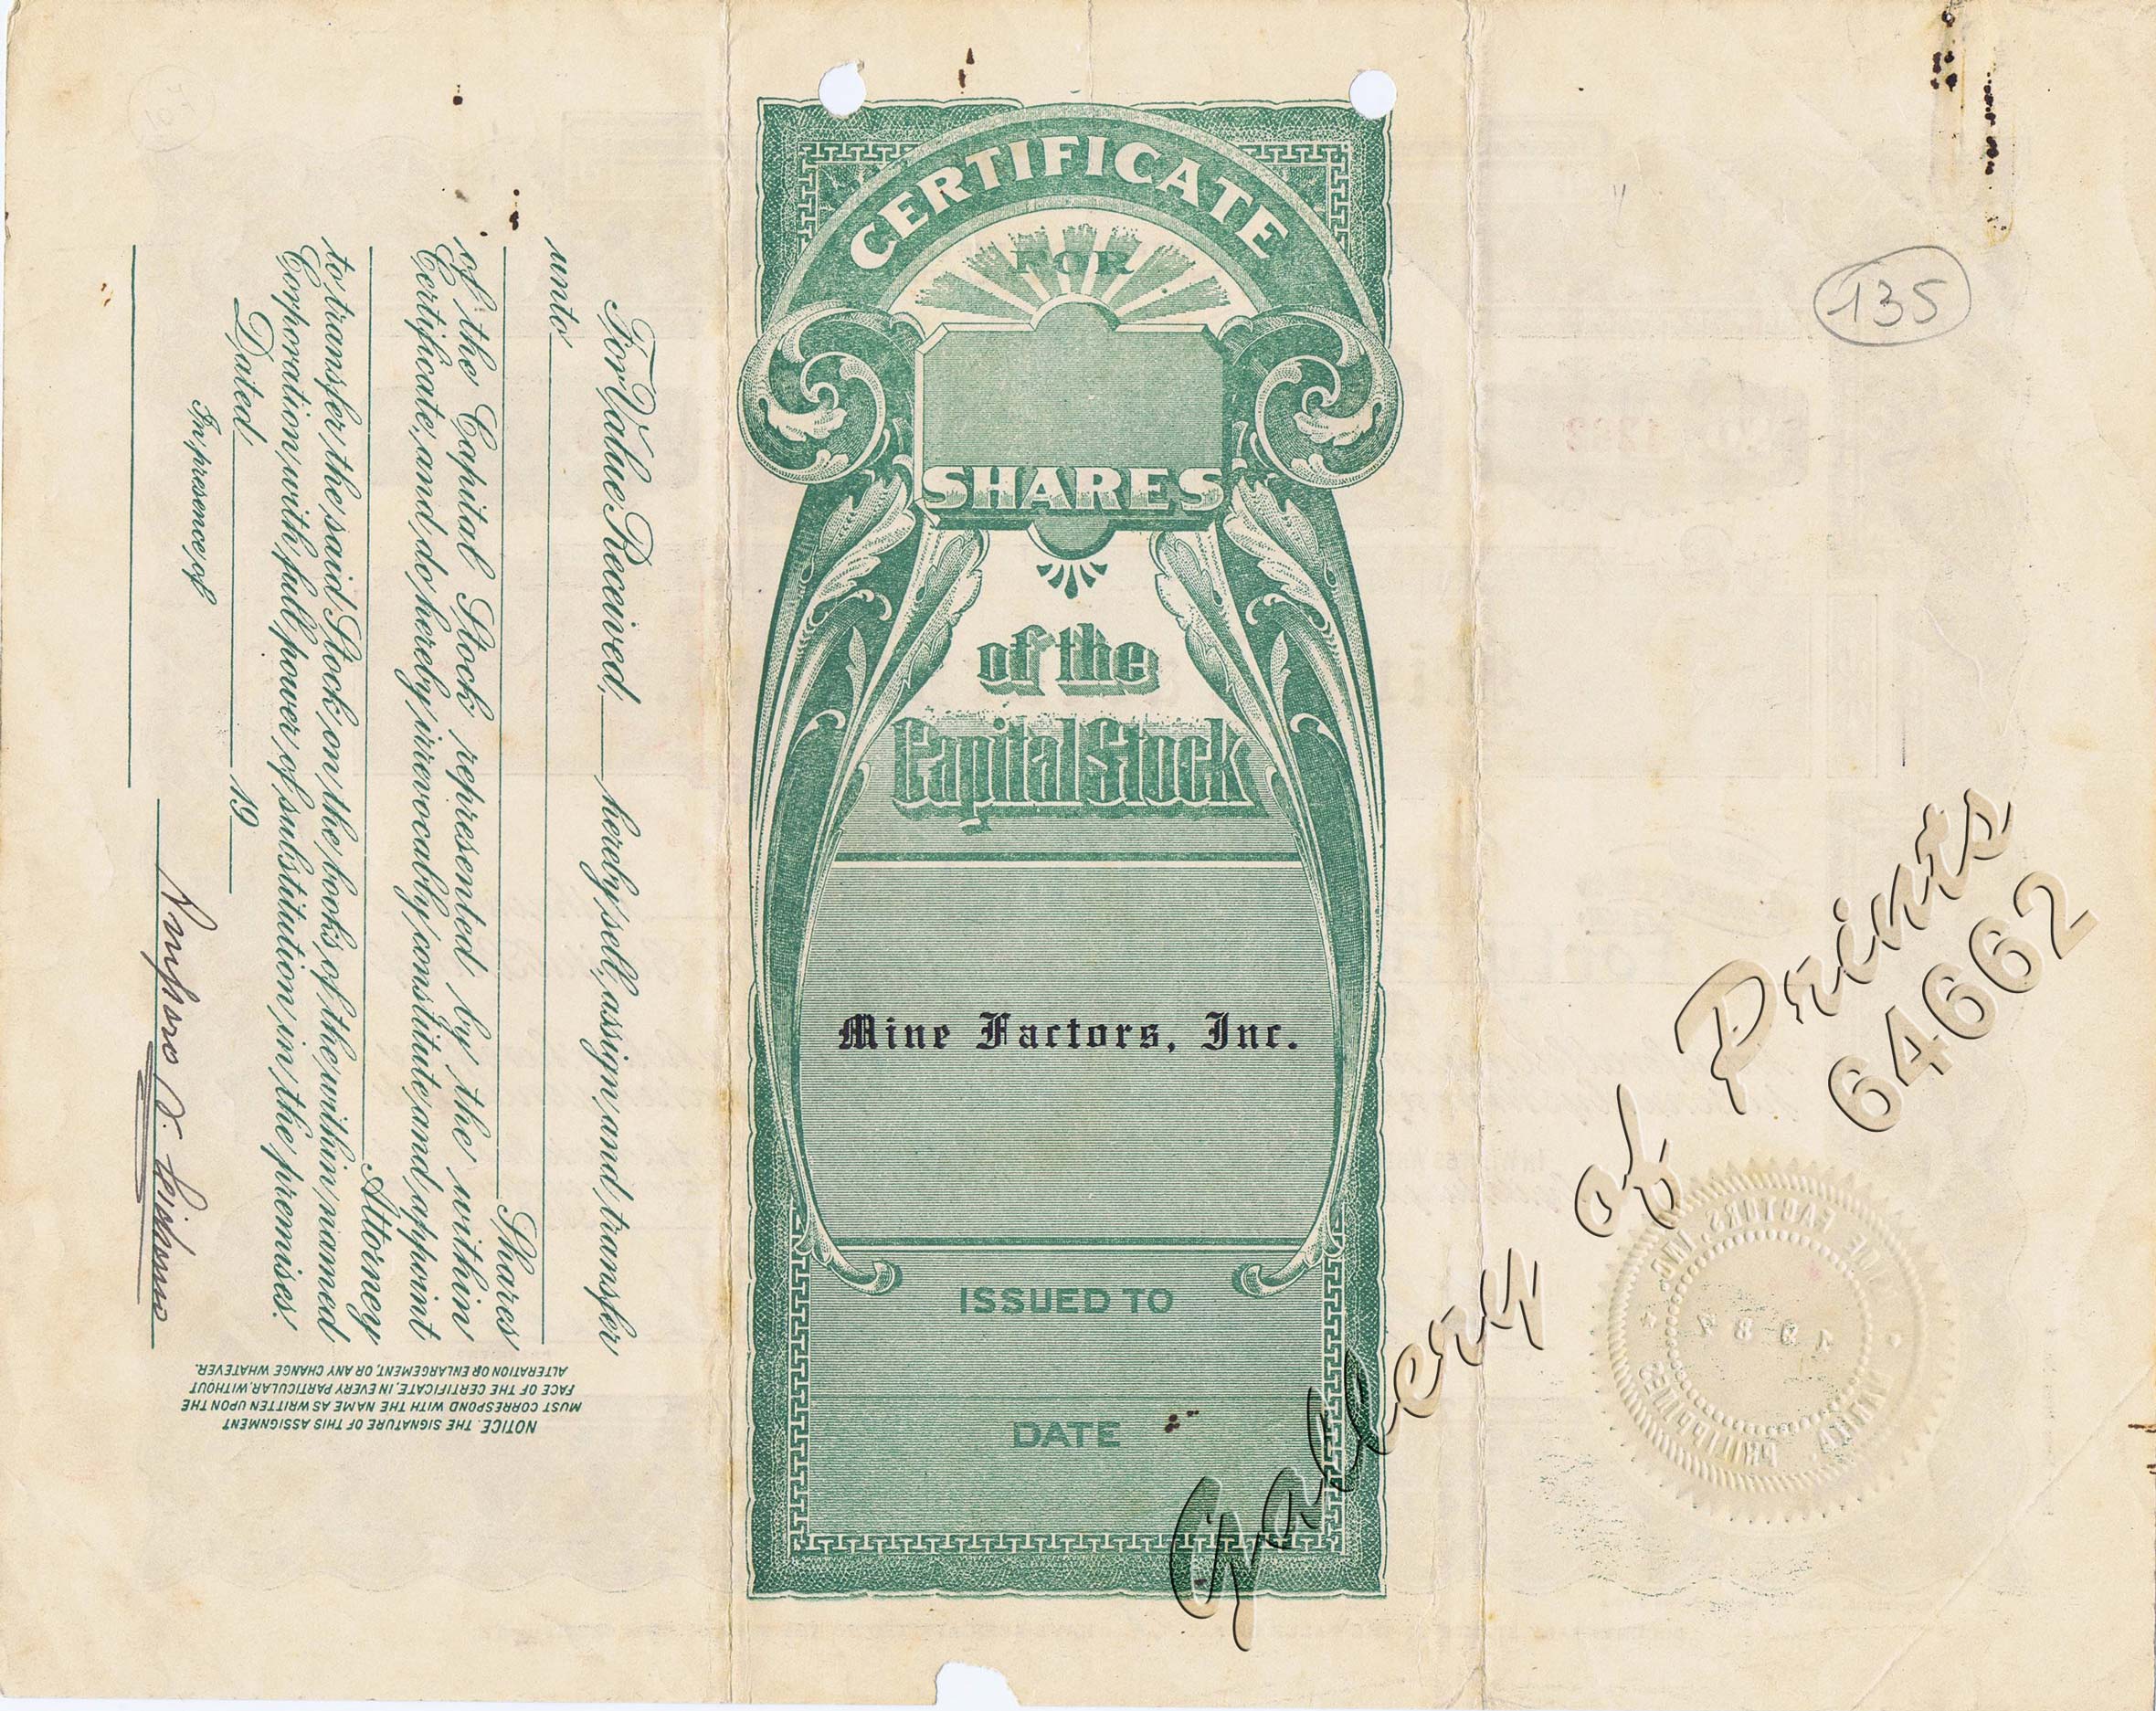 CERTIFICATE
FOR
SHARES
of the
Capital Stock
Mine Factors, Inc.
ISSUED TO
DATE
For Value Received, hereby sell, assign and transfer
unto
Shares
of the Capital Stock represented by the within
Certificate, and do hereby irrevocably constitute and appoint
Attorney
to transfer the said Stock on the books of the within named
Corporation with full power of substitution in the premises.
Dated 19
In presence of
NOTICE. THE SIGNATURE OF THIS ASSIGNMENT
MUST CORRESPOND WITH THE NAME AS WRITTEN UPON THE
FACE OF THE CERTIFICATE, IN EVERY PARTICULAR, WITHOUT
ALTERATION OR ENLARGEMENT, OR ANY CHANGE WHATEVER.
135
Gallery of Prints
64662
FACTORS, INC.
PHILIPPINES